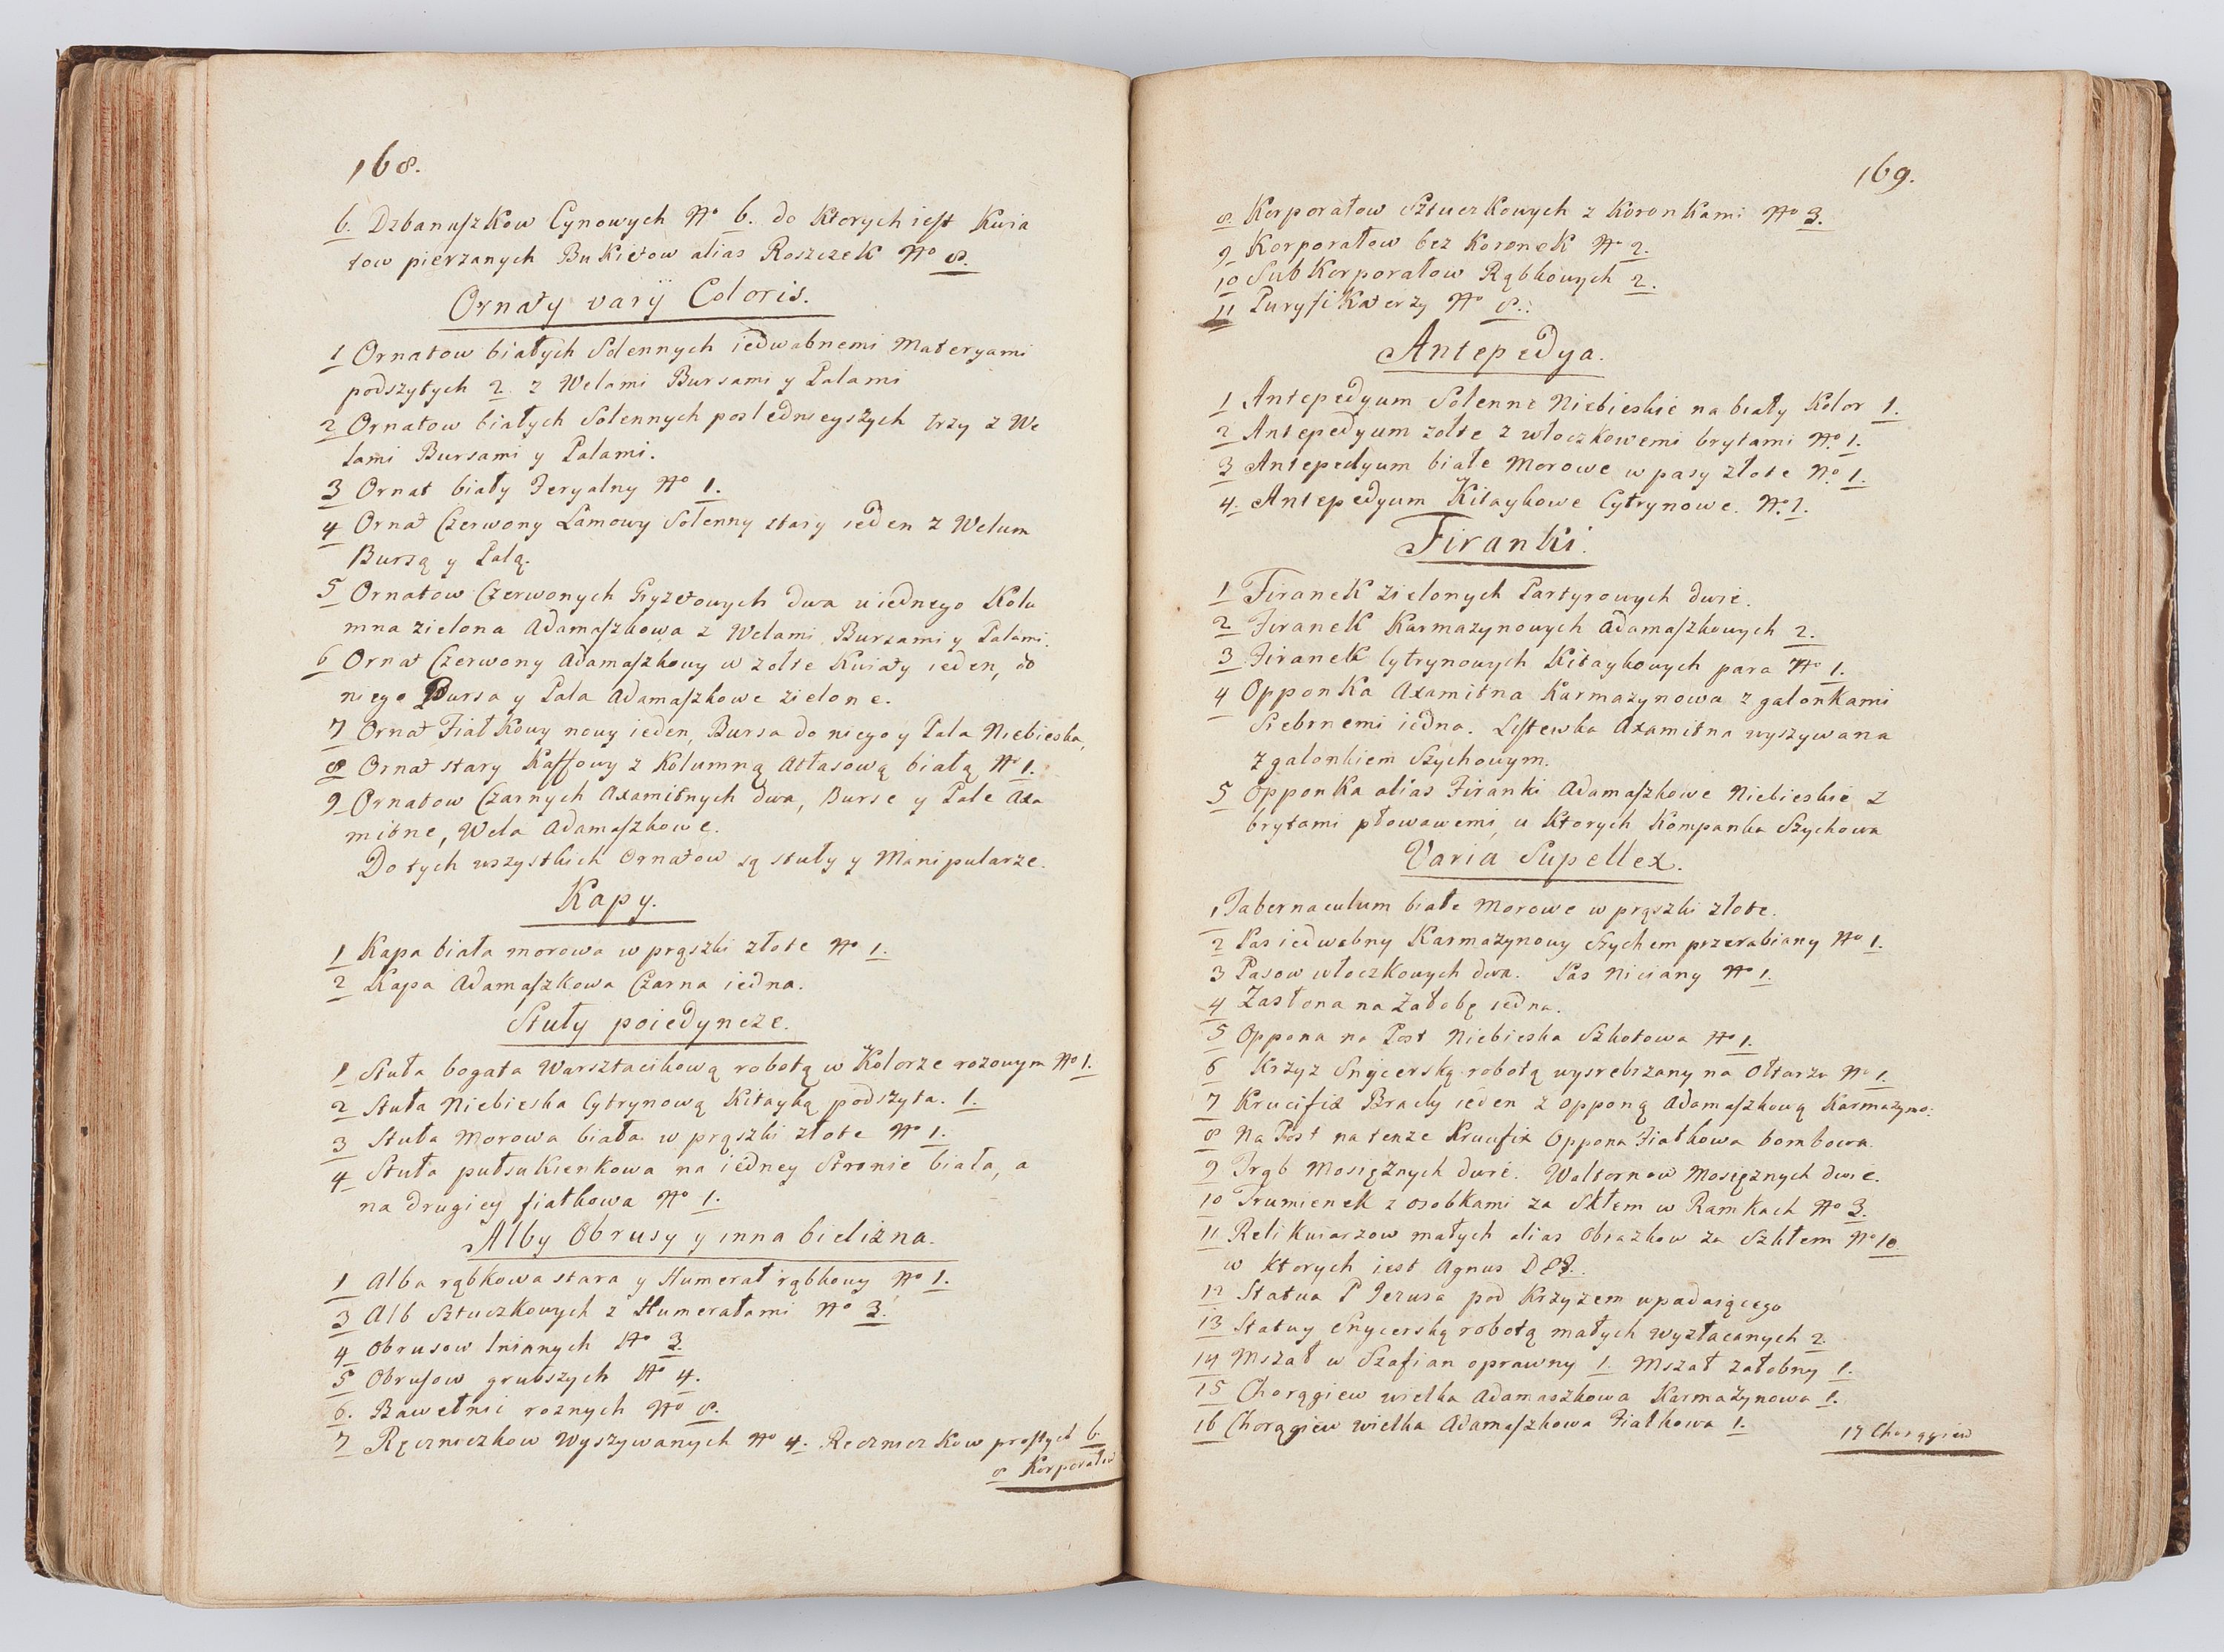 168.
6. Dzbanuszkow Cynowych No 6. do Ktorych iest Kwia
tow pierzanych Bukietow alias Roszczek No 8.
Ornaty varÿ Coloris.
1 Ornatow białych Solennych iedwabnemi Materyami
podszytych 2 z Welami Bursami y Palami
2 Ornatow białych Solennych poslednieyszych trzy z We
lami Bursami y Palami.
3 Ornat biały Feryalny No 1.
4 Ornat Czerwony Lamowy Solenny stary ieden z Welum
Bursą y Palą.
5 Ornatow Czerwonych Gryzetowych dwa u iednego Kolu
mna zielona Adamaszkowa z Welami Bursami y Palami.
6 Ornat Czerwony Adamaszkowy w zołte Kwiaty ieden, do
niego Bursa y Pala Adamaszkowe zielone.
7 Ornat Fiałkowy nowy ieden, Bursa do niego y Pala Niebieska,
8 Ornat stary Kaffowy z Kolumną Atłasową białą No 1.
9 Ornatow Czarnych Axamitnych dwa, Burse y Pale Axa
mitne, Wela Adamaszkowe.
Do tych wszystkich Ornatow są stuły y Manipularze.
Kapy.
1 Kapa biała morowa w prążki złote No 1.
2 Kapa Adamaszkowa Czarna iedna.
Stuły poiedyncze.
1 Stuła bogata Warsztacikową robotą w Kolorze rozowym No 1.
2 Stuła Niebieska Cytrynową Kitayką podszyta. 1.
3 Stuła Morowa biała w prąszki złote No 1.
4 Stuła pułsukienkowa na iedney Stronie biała, a
na drugiey fiałkowa No 1.
Alby Obrusy y inna bielizna.
1 Alba rąbkowa stara y Humerał rąbkowy No 1.
3 Alb Sztuczkowych z Humerałami No 3.
4 Obrusow lnianych No 3.
5 Obrusow grubszych No 4.
6. Bawełnic roznych No 8.
7 Ręczniczkow Wyszywanych No 4. Ręczniczkow prostych 6.
8 Korporałow
169.
8. Korporałow Sztuczkowych z Koronkami No 3.
9 Korporałow bez Koronek No 2.
10 SubKorporałow Rąbkowych 2.
11 Puryfikaterzy No 8.
Antepedya.
1 Antepedyum Solenne Niebieskie na biały Kolor 1.
2 Antepedyum zołte z włoczkowemi brytami No 1.
3 Antepedyum białe Morowe w pasy złote No 1.
4. Antepedyum Kitaykowe Cytrynowe. No 1.
Firanki.
1 Firanek zielonych Partyrowych dwie.
2 Firanek Karmazynowych Adamaszkowych 2.
3 Firanek Cytrynowych Kitaykowych para No 1.
4 Opponka Axamitna Karmazynowa z galonkami
Srebrnemi iedna. Listewka Axamitna wyszywana
z galonkiem Szychowym.
5 Opponka alias Firanki Adamaszkowe Niebieskie z
brytami płowawemi, u Ktorych Kompanka Szychowa
Varia Supellex.
1 Tabernaculum białe Morowe w prąszki złote.
2 Pas iedwabny Karmazynowy Szychem przerabiany No 1.
3 Pasow włoczkowych dwa. Pas Niciany No 1.
4 Zasłona na Załobę iedna.
5 Oppona na Post Niebieska Szkotowa No 1.
6 Krzyz Snycerską robotą wysrebrzany na Ołtarzu No 1.
7 Krucifix Bracky ieden z opponą Adamaszkową Karmazyno:
8 Na Post na tenze Krucifix Oppona Fiałkowa bombowa.
9 Trąb Mosięznych dwie. Waltornow Mosięznych dwie.
10 Trumienek z osobkami za Skłem w Ramkach No 3.
11 Relikwiarzow małych alias Obrazkow za Szkłem No 10
w Ktorych iest Agnus DEI.
12 Statua P Jezusa pod Krzyzem upadaiącego
13 Statuy Snycerską robotą małych wyzłacanych 2.
14 Mszał w Szafian oprawny 1. Mszał załobny 1.
15 Chorągiew wielka Adamaszkowa Karmazynowa 1.
16 Chorągiew wielka Adamaszkowa Fiałkowa 1.
17 Chorągiew